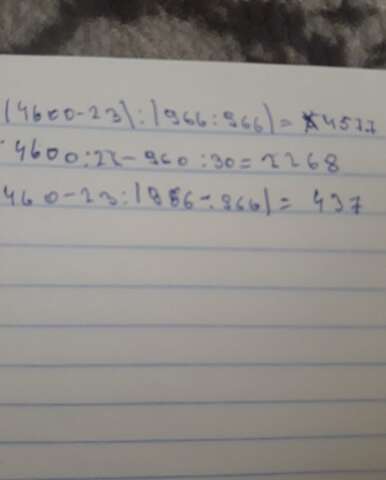 (4600-23):(966:966)=4577
4600:2-960:30=2268
460-23:(966:966)=437